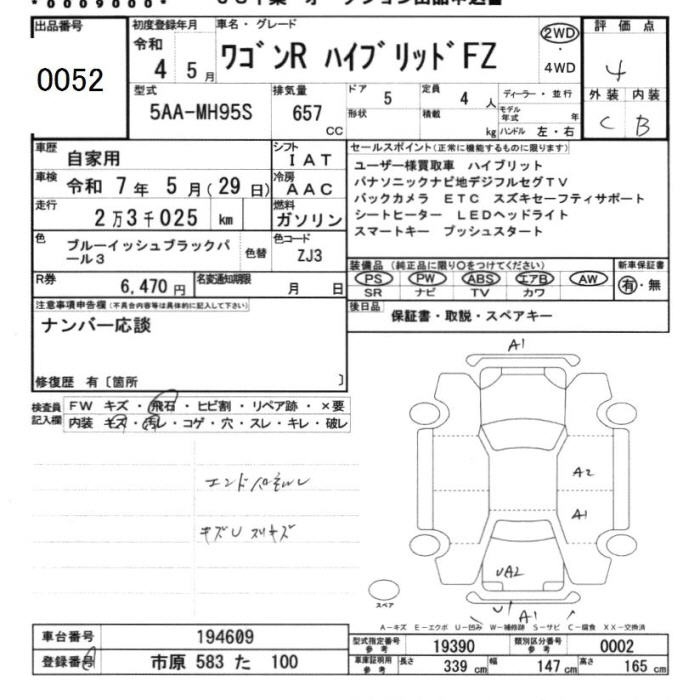 出品番号
0052
初度登録年月
令和
4 5月
車名・グレード
ワゴンR ハイブリッドFZ
2WD
・
4WD
評価点
4
外装 内装
C B
型式
5AA-MH95S
排気量
657
CC
ドア
5
定員
4 人
形状
積載
kg
ディーラー・並行
モデル年式 年
ハンドル 左・右
車歴
自家用
シフト
IAT
車検
令和 7年 5月(29日)
冷房
AAC
走行
2万3千025 km
燃料
ガソリン
色
ブルーイッシュブラックパール3
色替
色コード
ZJ3
R券
6,470円
名変通知期限
月 日
セールスポイント(正常に機能するものに限ります)
ユーザー様買取車 ハイブリット
パナソニックナビ地デジフルセグTV
バックカメラ ETC スズキセーフティサポート
シートヒーター LEDヘッドライト
スマートキー プッシュスタート
装備品(純正品に限り○をつけてください)
PS PW ABS エアB AW
SR ナビ TV カワ
新車保証書
有・無
後日品
保証書・取説・スペアキー
注意事項申告欄(不具合内容等は具体的に記入して下さい)
ナンバー応談
修復歴 有〔箇所 〕
検査員記入欄
FW キズ・飛石・ヒビ割・リペア跡・×要
内装 キズ・汚レ・コゲ・穴・スレ・キレ・破レ
キズU スリキズ
A1
A2
A1
UA2
U1
A1
スペア
A-キズ E-エクボ U-凹み W-補修跡 S-サビ C-腐食 XX-交換済
車台番号
194609
登録番号
市原 583 た 100
型式指定番号
参考
19390
類別区分番号
参考
0002
車庫証明用
参考
長さ 339 cm 幅 147 cm 高さ 165 cm